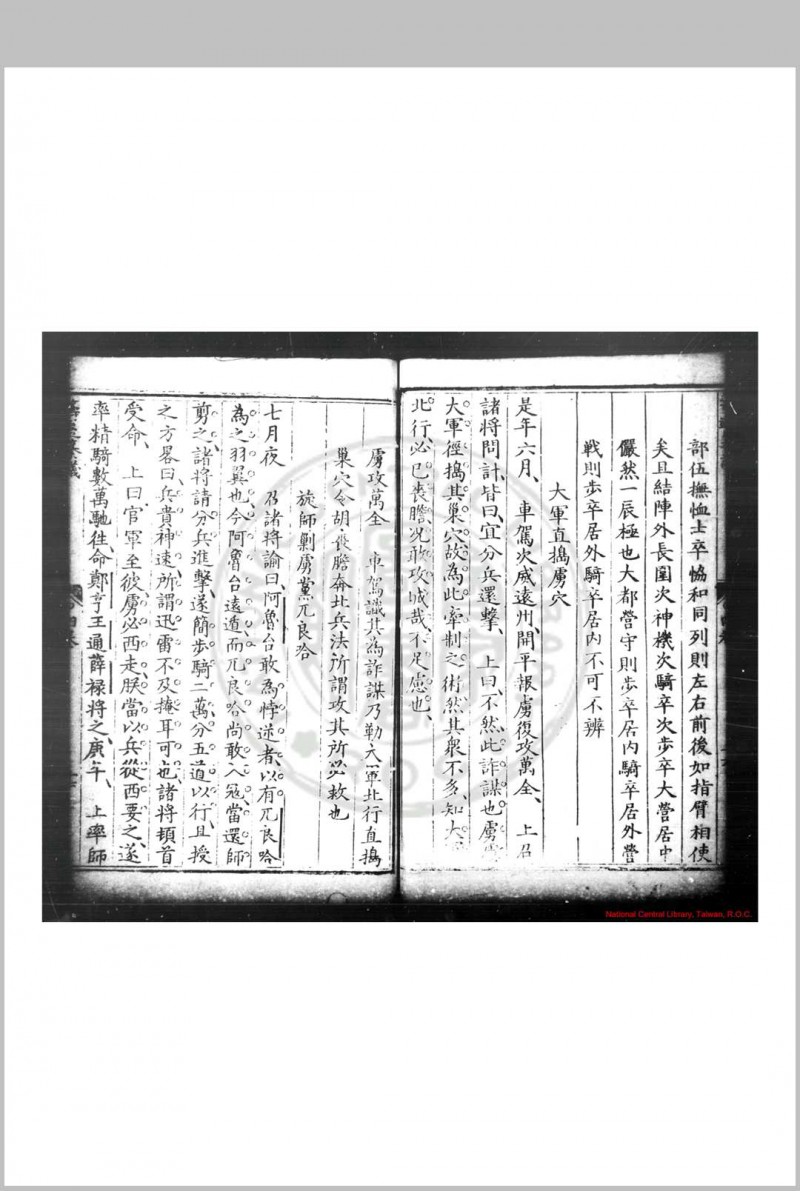 部伍撫恤士卒恊和同列則左右前後如指臂相使
矣且結陣外長圍次神機次騎卒次步卒大營居中
儼然一辰極也大都營守則步卒居内騎卒居外營
戦則步卒居外騎卒居内不可不辨
大軍直搗虜穴
是年六月車駕次威遠州開平報虜復攻萬全上召
諸將問計皆曰宜分兵還擊上曰不然此詐謀也虜
大軍徑搗其巢穴故為此牽制之術然其衆不多知大
北行必已喪膽况敢攻城哉不足慮也
虜攻萬全車駕識其為詐謀乃勒大軍北行直搗
巢穴令胡喪膽奔北兵法所謂攻其所必救也
旋師剿虜黨兀良哈
七月夜召諸將諭曰阿魯台敢為悖逆者以有兀良哈
為之羽翼也今阿魯台遠遁而兀良哈尚敢入寇當還師
剪之諸將請分兵進擊遂簡步騎二萬分五道以行且授
之方畧曰兵貴神速所謂迅雷不及掩耳可也諸將頓首
受命上曰官軍至彼虜必西走朕當以兵從西要之遂
率精騎數萬馳往命鄭亨王通薛祿將之庚午上率師
National Central Library, Taiwan, R.O.C.